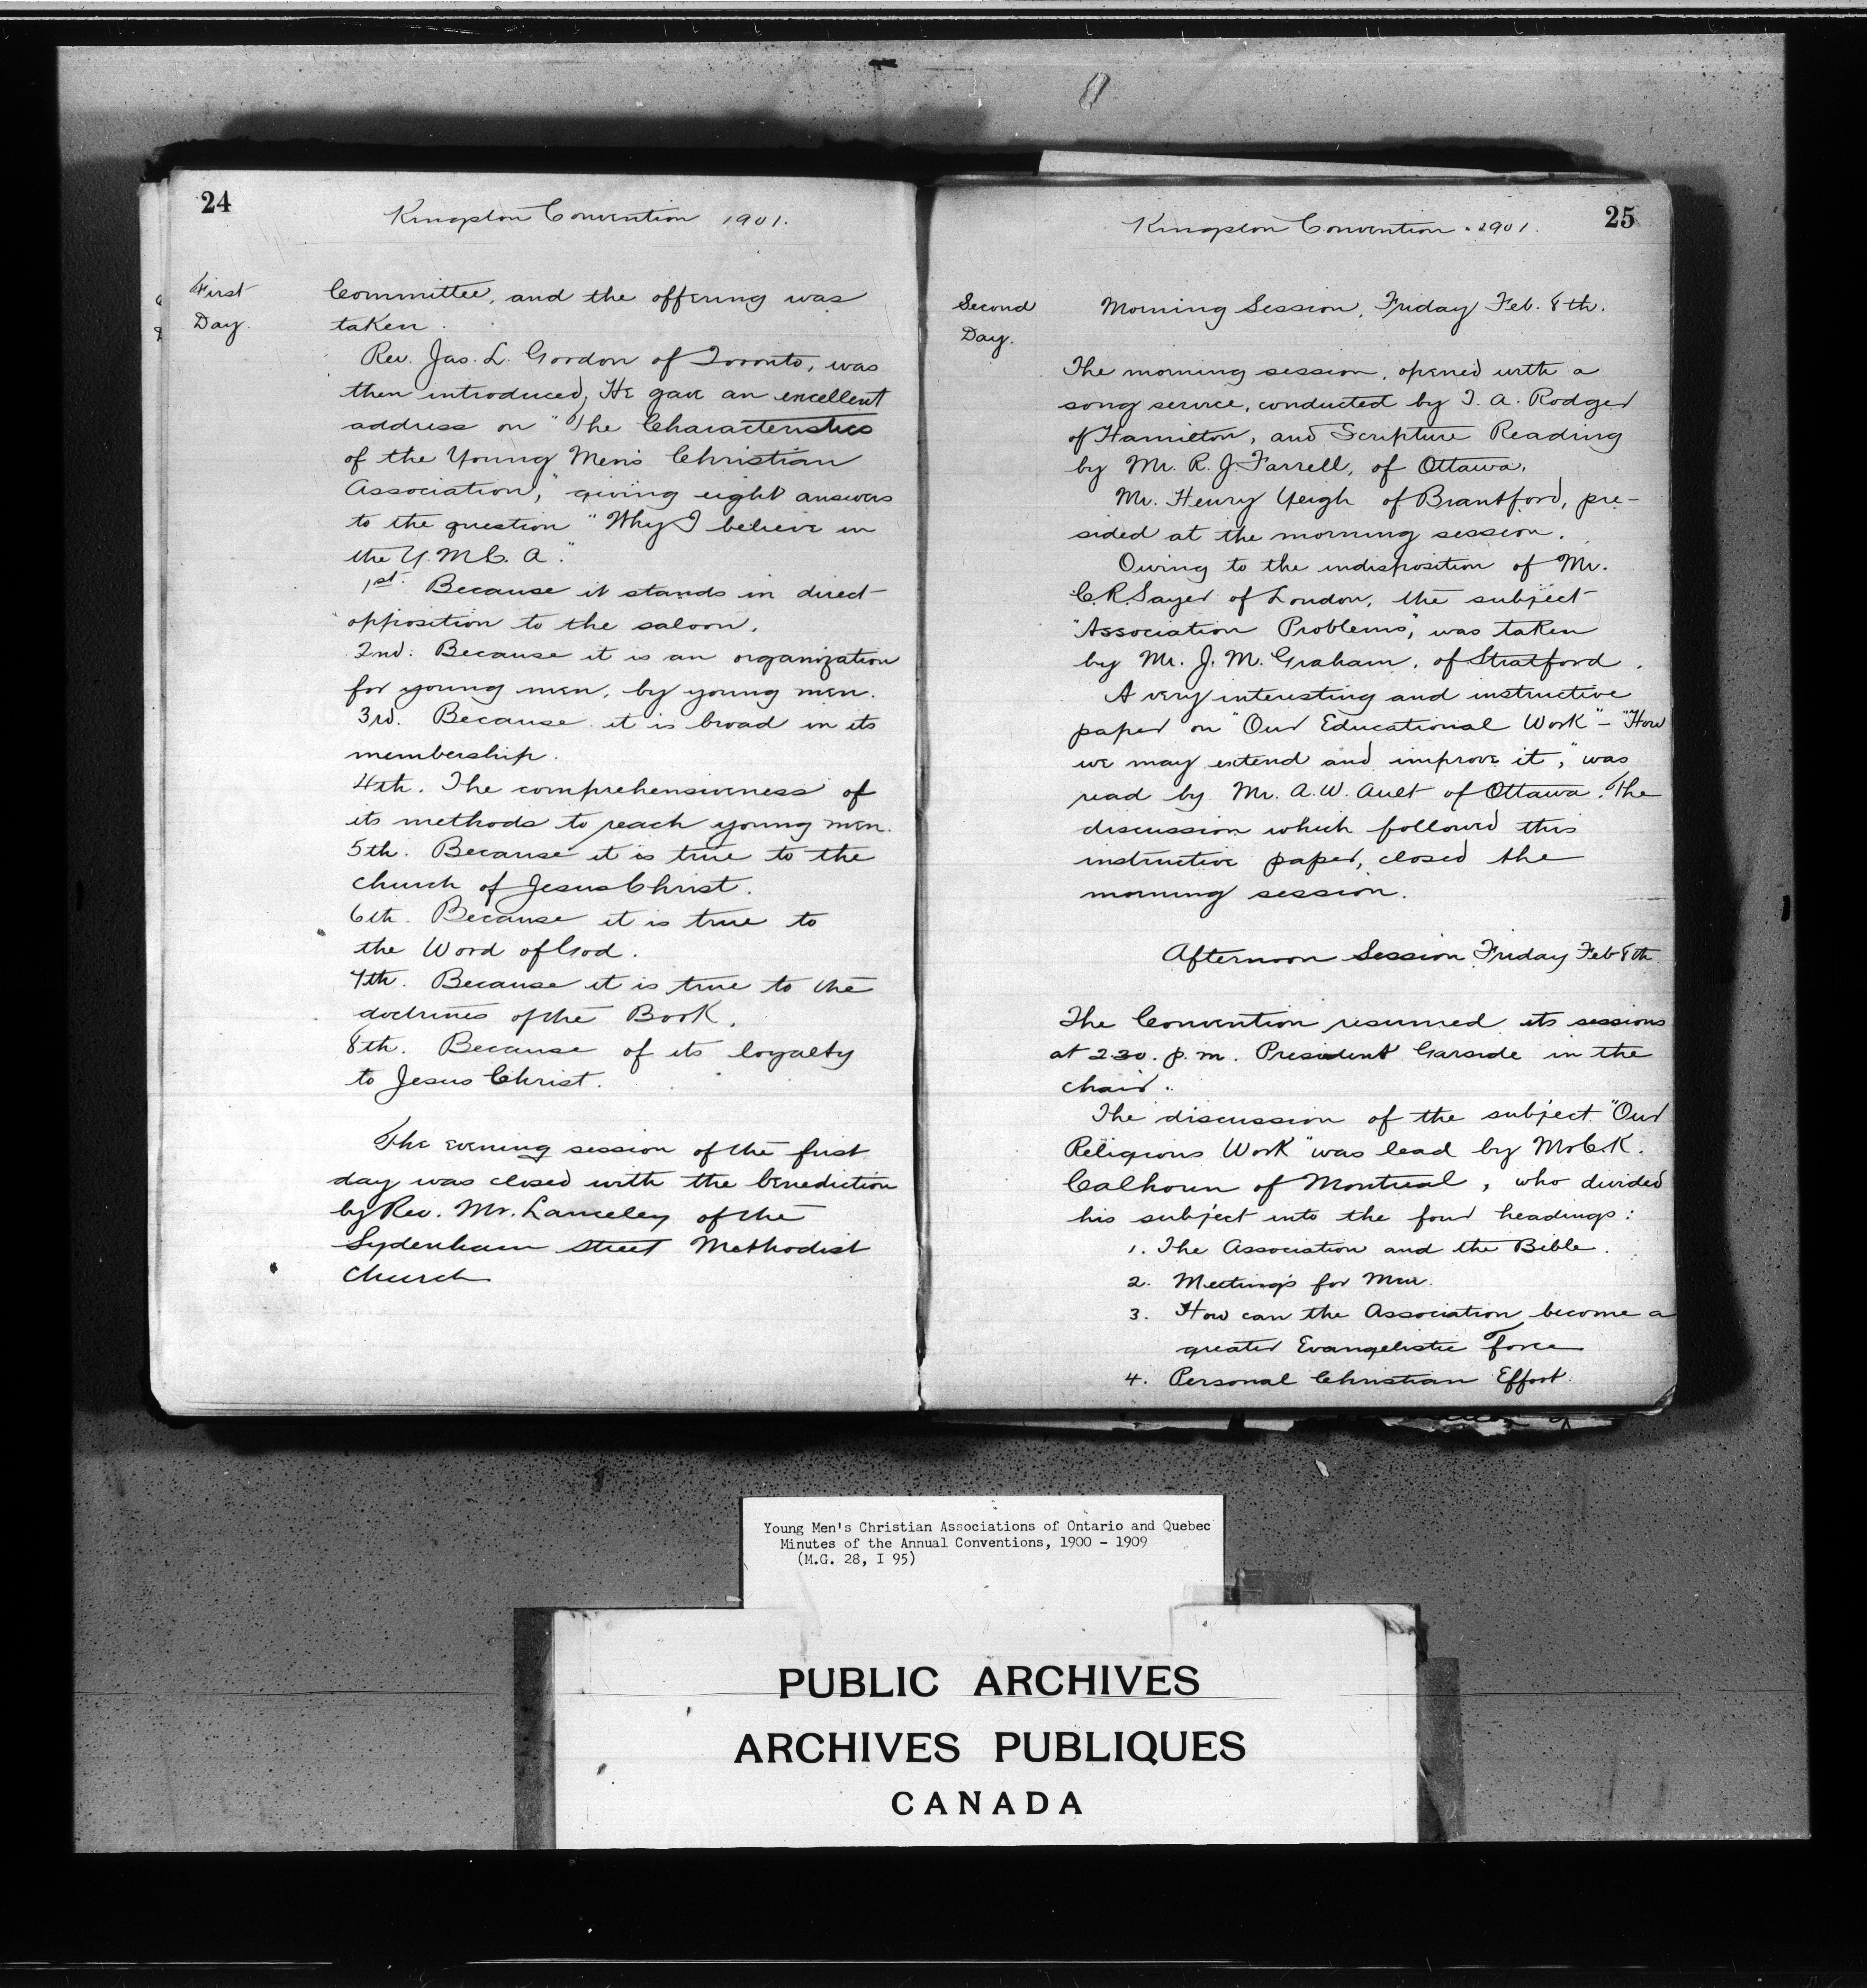 24
Kingston Convention 1901.
First
Day.
Committee, and the offering was
taken.
Rev. Jas. L. Gordon of Toronto, was
then introduced, He gave an excellent
address on "The Characteristics
of the Young Men's Christian
Association," giving eight answers
to the question "Why I believe in
the Y.M.C.A."
1st. Because it stands in direct
opposition to the saloon.
2nd. Because it is an organization
for young men, by young men.
3rd. Because it is broad in its
membership.
4th. The comprehensiveness of
its methods to reach young men.
5th. Because it is true to the
church of Jesus Christ.
6th. Because it is true to
the Word of God.
7th. Because it is true to the
doctrines of the Book.
8th. Because of its loyalty
to Jesus Christ.
The evening session of the first
day was closed with the benediction
by Rev. Mr. Lanceley of the
Sydenham Street Methodist
Church
25
Kingston Convention. 1901.
Second
Day.
Morning Session, Friday Feb. 8th.
The morning session, opened with a
song service, conducted by T. A. Rodger
of Hamilton, and Scripture Reading
by Mr. R. J. Farrell, of Ottawa.
Mr. Henry Yeigh of Brantford, pre-
sided at the morning session.
Owing to the indisposition of Mr.
C. R. Sayer of London, the subject
"Association Problems," was taken
by Mr. J. M. Graham, of Stratford.
A very interesting and instructive
paper on "Our Educational Work" - "How
we may extend and improve it," was
read by Mr. A. W. Ault of Ottawa. The
discussion which followed this
instructive paper, closed the
morning session.
Afternoon Session Friday Feb 8th
The Convention resumed its sessions
at 2 30. p.m. President Garside in the
chair.
The discussion of the subject "Our
Religious Work" was lead by Mr C. K.
Calhoun of Montreal, who divided
his subject into the four headings:
1. The Association and the Bible.
2. Meetings for Men.
3. How can the Association become a
greater Evangelistic Force
4. Personal Christian Effort.
Young Men's Christian Associations of Ontario and Quebec
Minutes of the Annual Conventions, 1900 - 1909
(M.G. 28, I 95)
PUBLIC ARCHIVES
ARCHIVES PUBLIQUES
CANADA